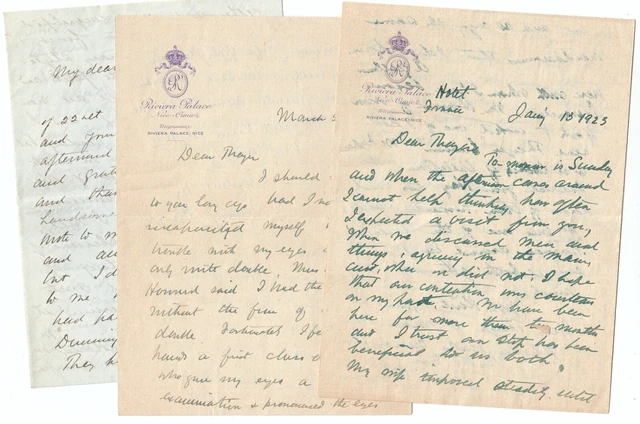 My dear
of 22nd
and your
afternoon
and
and than
handsome
wrote to m
and all
but I d
to me
had pa
They h
R
Riviera Palace
Nice-Cimiez
RIVIERA PALACE, NICE
March
Dear Thayer
I should
to you long ago had I no
incapacitated myself
trouble with my eyes
only write double, Miss
Howard said I had the
without the fumes of
double Fortunately I fe
hands a first class o
who gave my eyes a
examination & pronounced the eyes
R
Riviera Palace Hotel
Nice-Cimiez France
RIVIERA PALACE, NICE
Jany 13 1923
Dear Thayer
To morrow is Sunday
and when the afternoon comes around
I cannot help thinking how often
I expected a visit from you,
When we discussed men and
things, agreeing in the main,
and when we did not. I hope
that our contention was courteous
on my part. We have been
here for more than two months
and I trust our stay has been
beneficial to us both
My wife improved steadily until